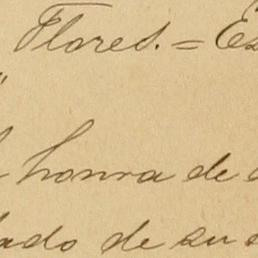 Flores. = Es
honra de
ado de su